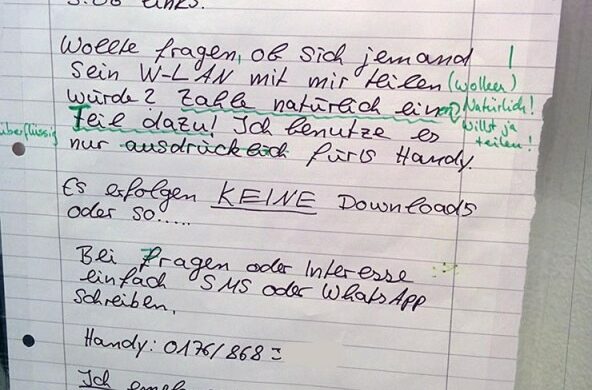 Wollte fragen, ob sich jemand !
Sein W-LAN mit mir teilen (wollen)
würde? Zahle natürlich einen Natürlich!
Teil dazu! Ich benutze es Willst ja
überflüssig teilen!
nur ausdrücklich fürs Handy.
Es erfolgen KEINE Downloads
oder so.....
Bei Fragen oder Interesse :->
einfach SMS oder WhatsApp
schreiben.
Handy: 0176/868
Ich